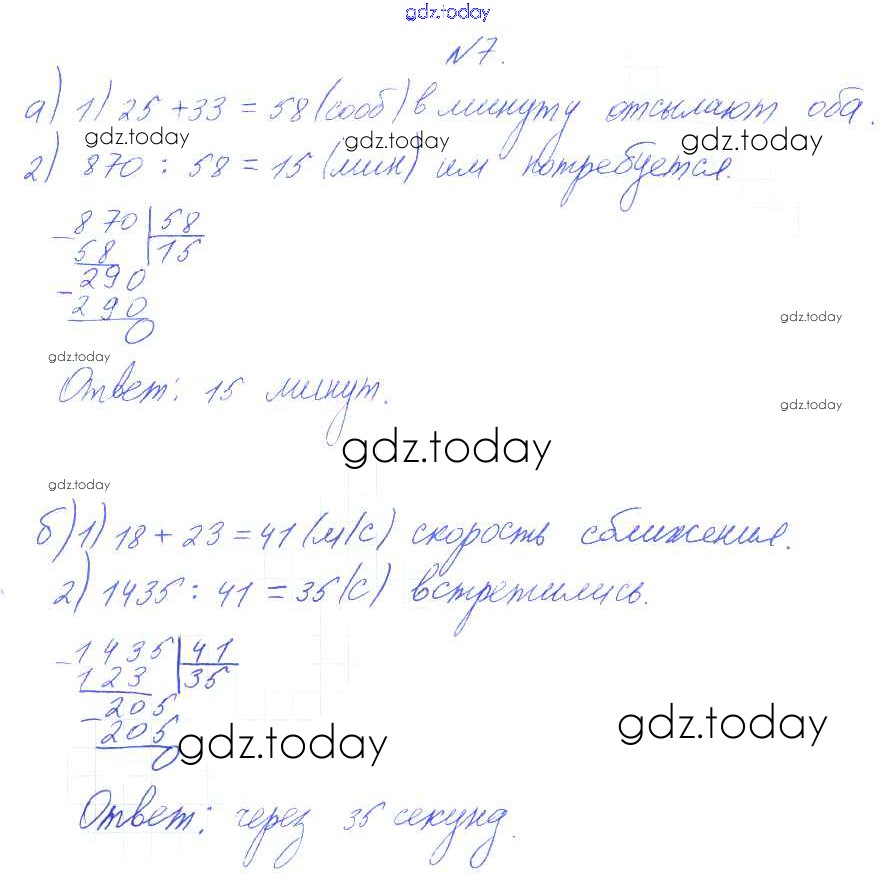 gdz.today
№7.
а) 1) 25 + 33 = 58 (сооб) в минуту отсылают оба.
gdz.today gdz.today gdz.today
2) 870 : 58 = 15 (мин) им потребуется.
- 870 | 58
58 | 15
- 290
290
0
gdz.today
gdz.today
Ответ: 15 минут.
gdz.today
gdz.today
gdz.today
б) 1) 18 + 23 = 41 (м/с) скорость сближения.
2) 1435 : 41 = 35 (с) встретились.
- 1435 | 41
123 | 35
- 205
205
0
gdz.today gdz.today
Ответ: через 35 секунд.